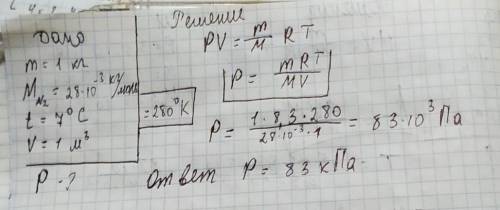 Дано
m = 1 кг
M_N₂ = 28·10⁻³ кг/моль
t = 7°C = 280°K
V = 1 м³
P - ?
Решение
PV = m/M RT
P = mRT/MV
P = 1·8,3·280/28·10⁻³·1 = 83·10³ Па
Ответ P = 83 кПа.